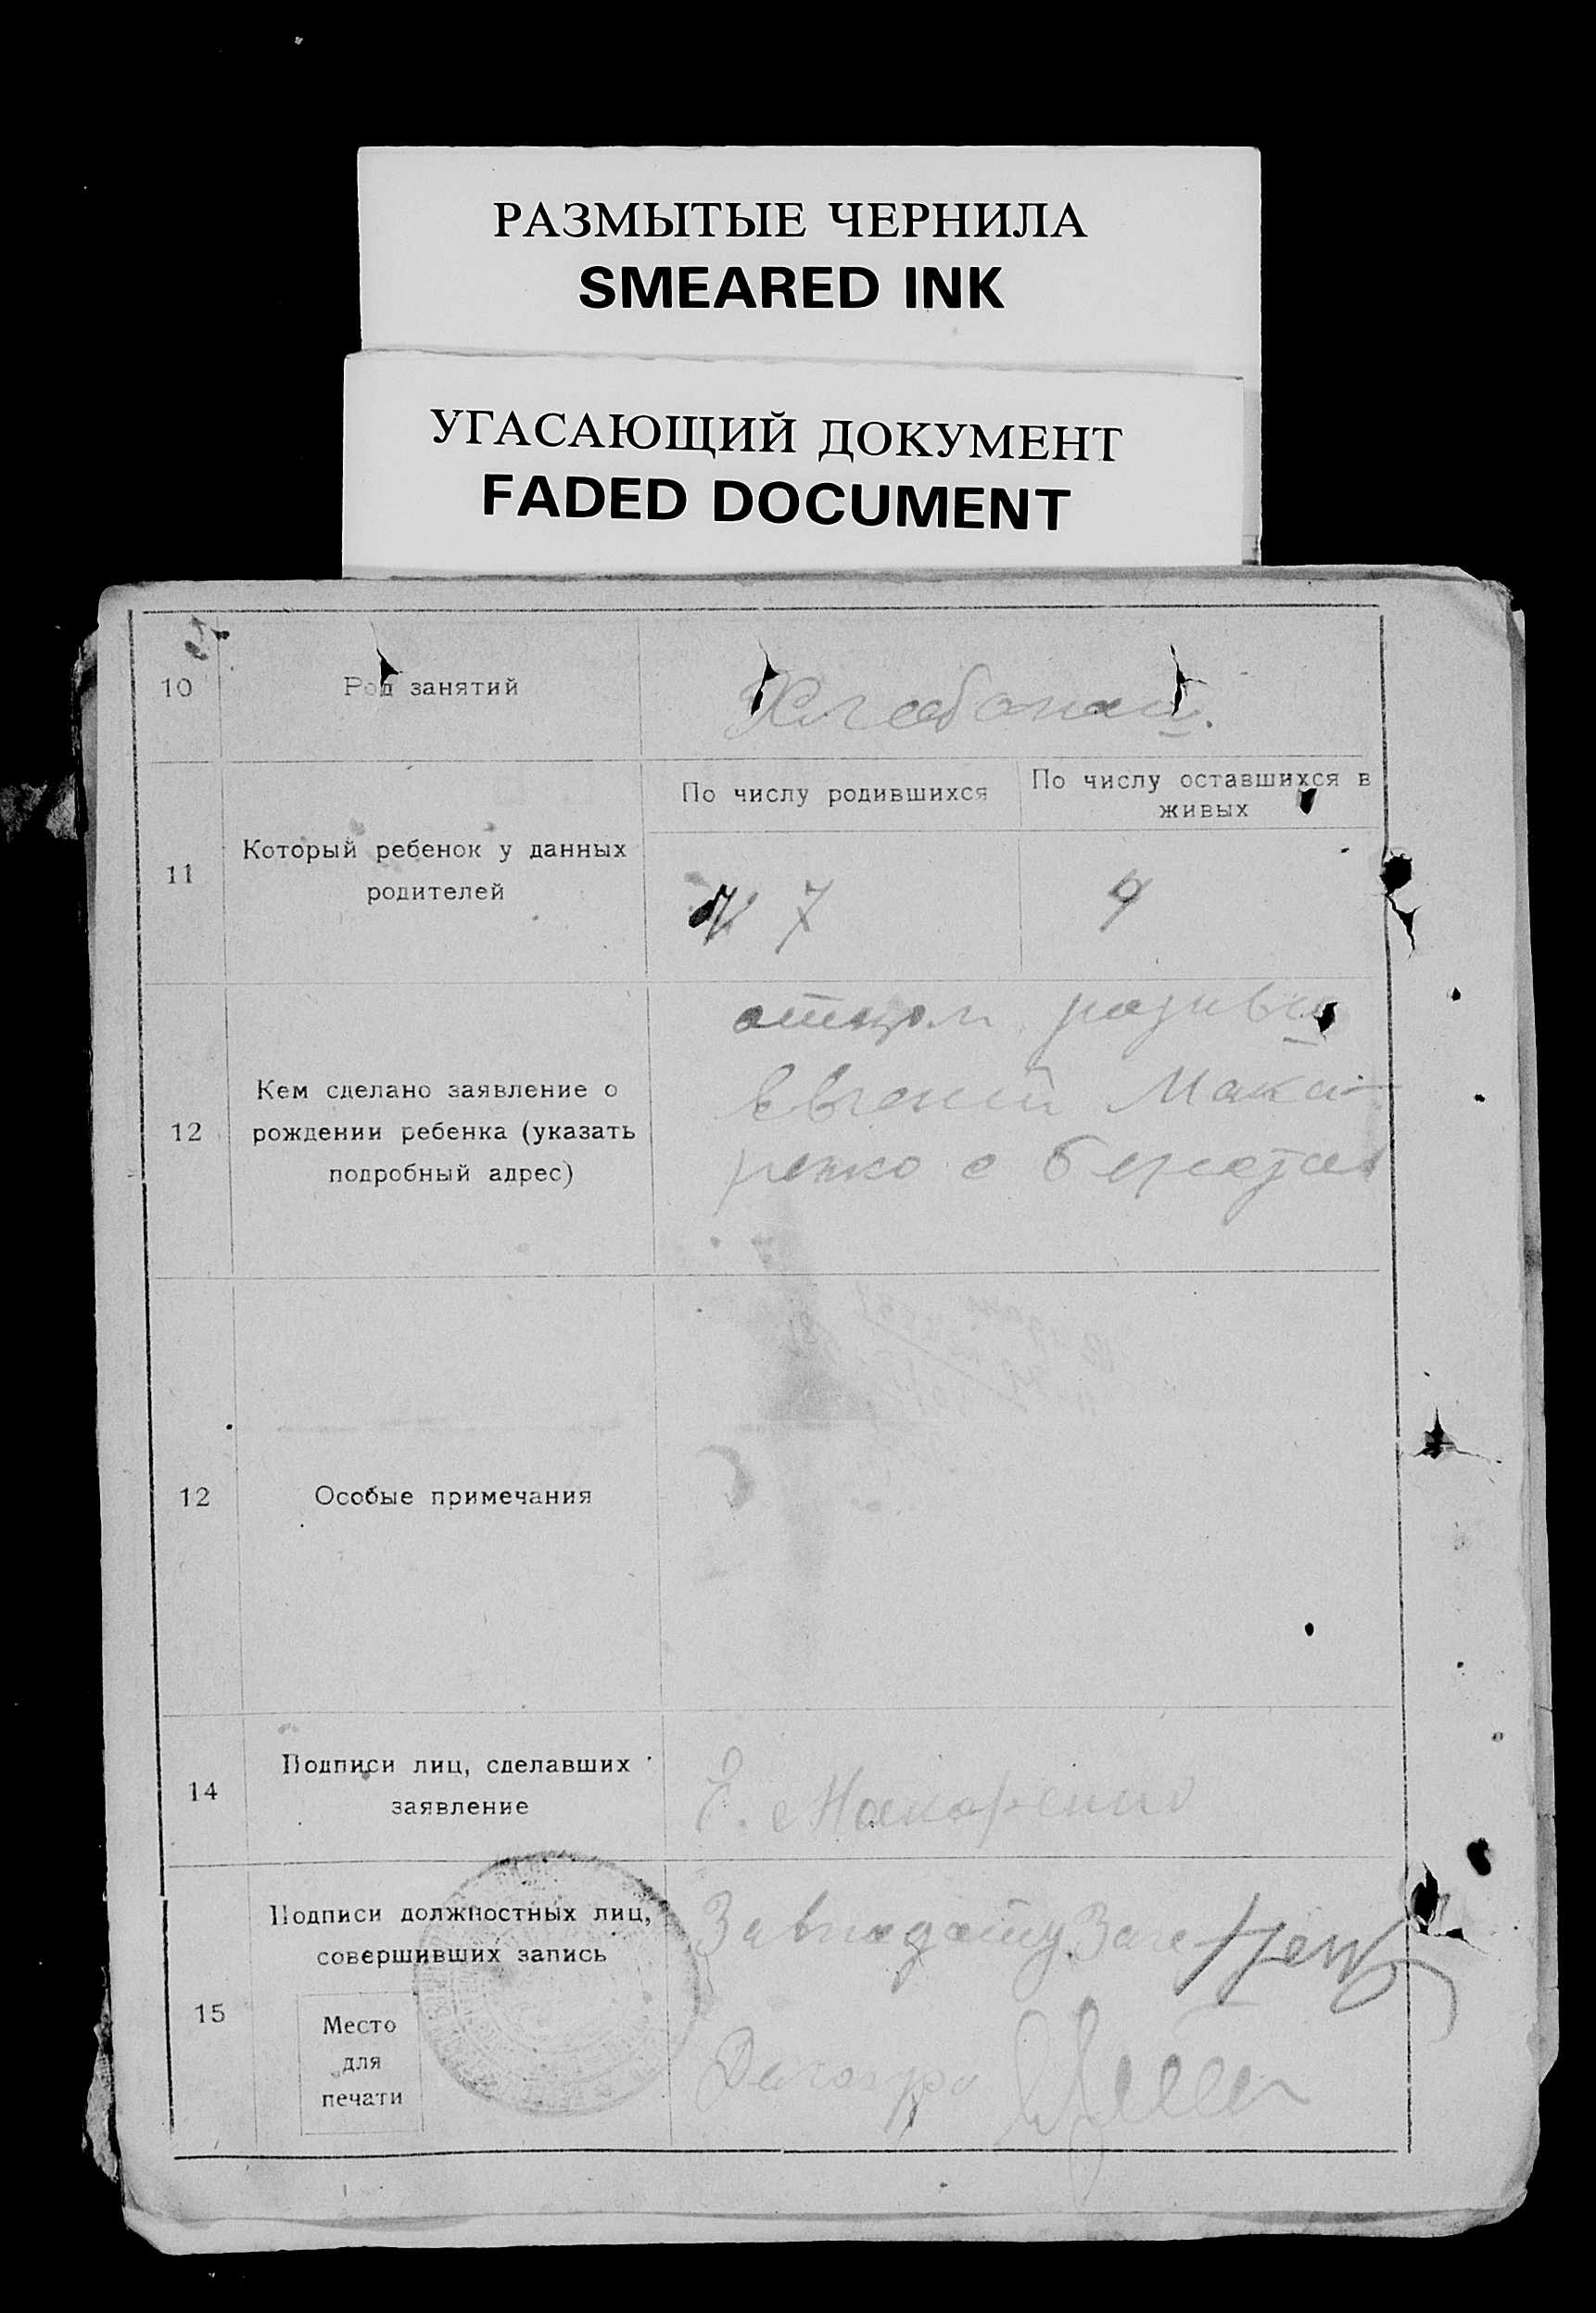 РАЗМЫТЫЕ ЧЕРНИЛА
SMEARED INK
УГАСАЮЩИЙ ДОКУМЕНТ
FADED DOCUMENT
10
Род занятий
11
Который ребенок у данных
родителей
По числу родившихся
По числу оставшихся в
живых
7
4
12
Кем сделано заявление о
рождении ребенка (указать
подробный адрес)
отцом
Евгений Мака-
ренко с
12
Особые примечания
14
Подписи лиц, сделавших
заявление
Е. Макаренко
15
Подписи должностных лиц,
совершивших запись
Место
для
печати